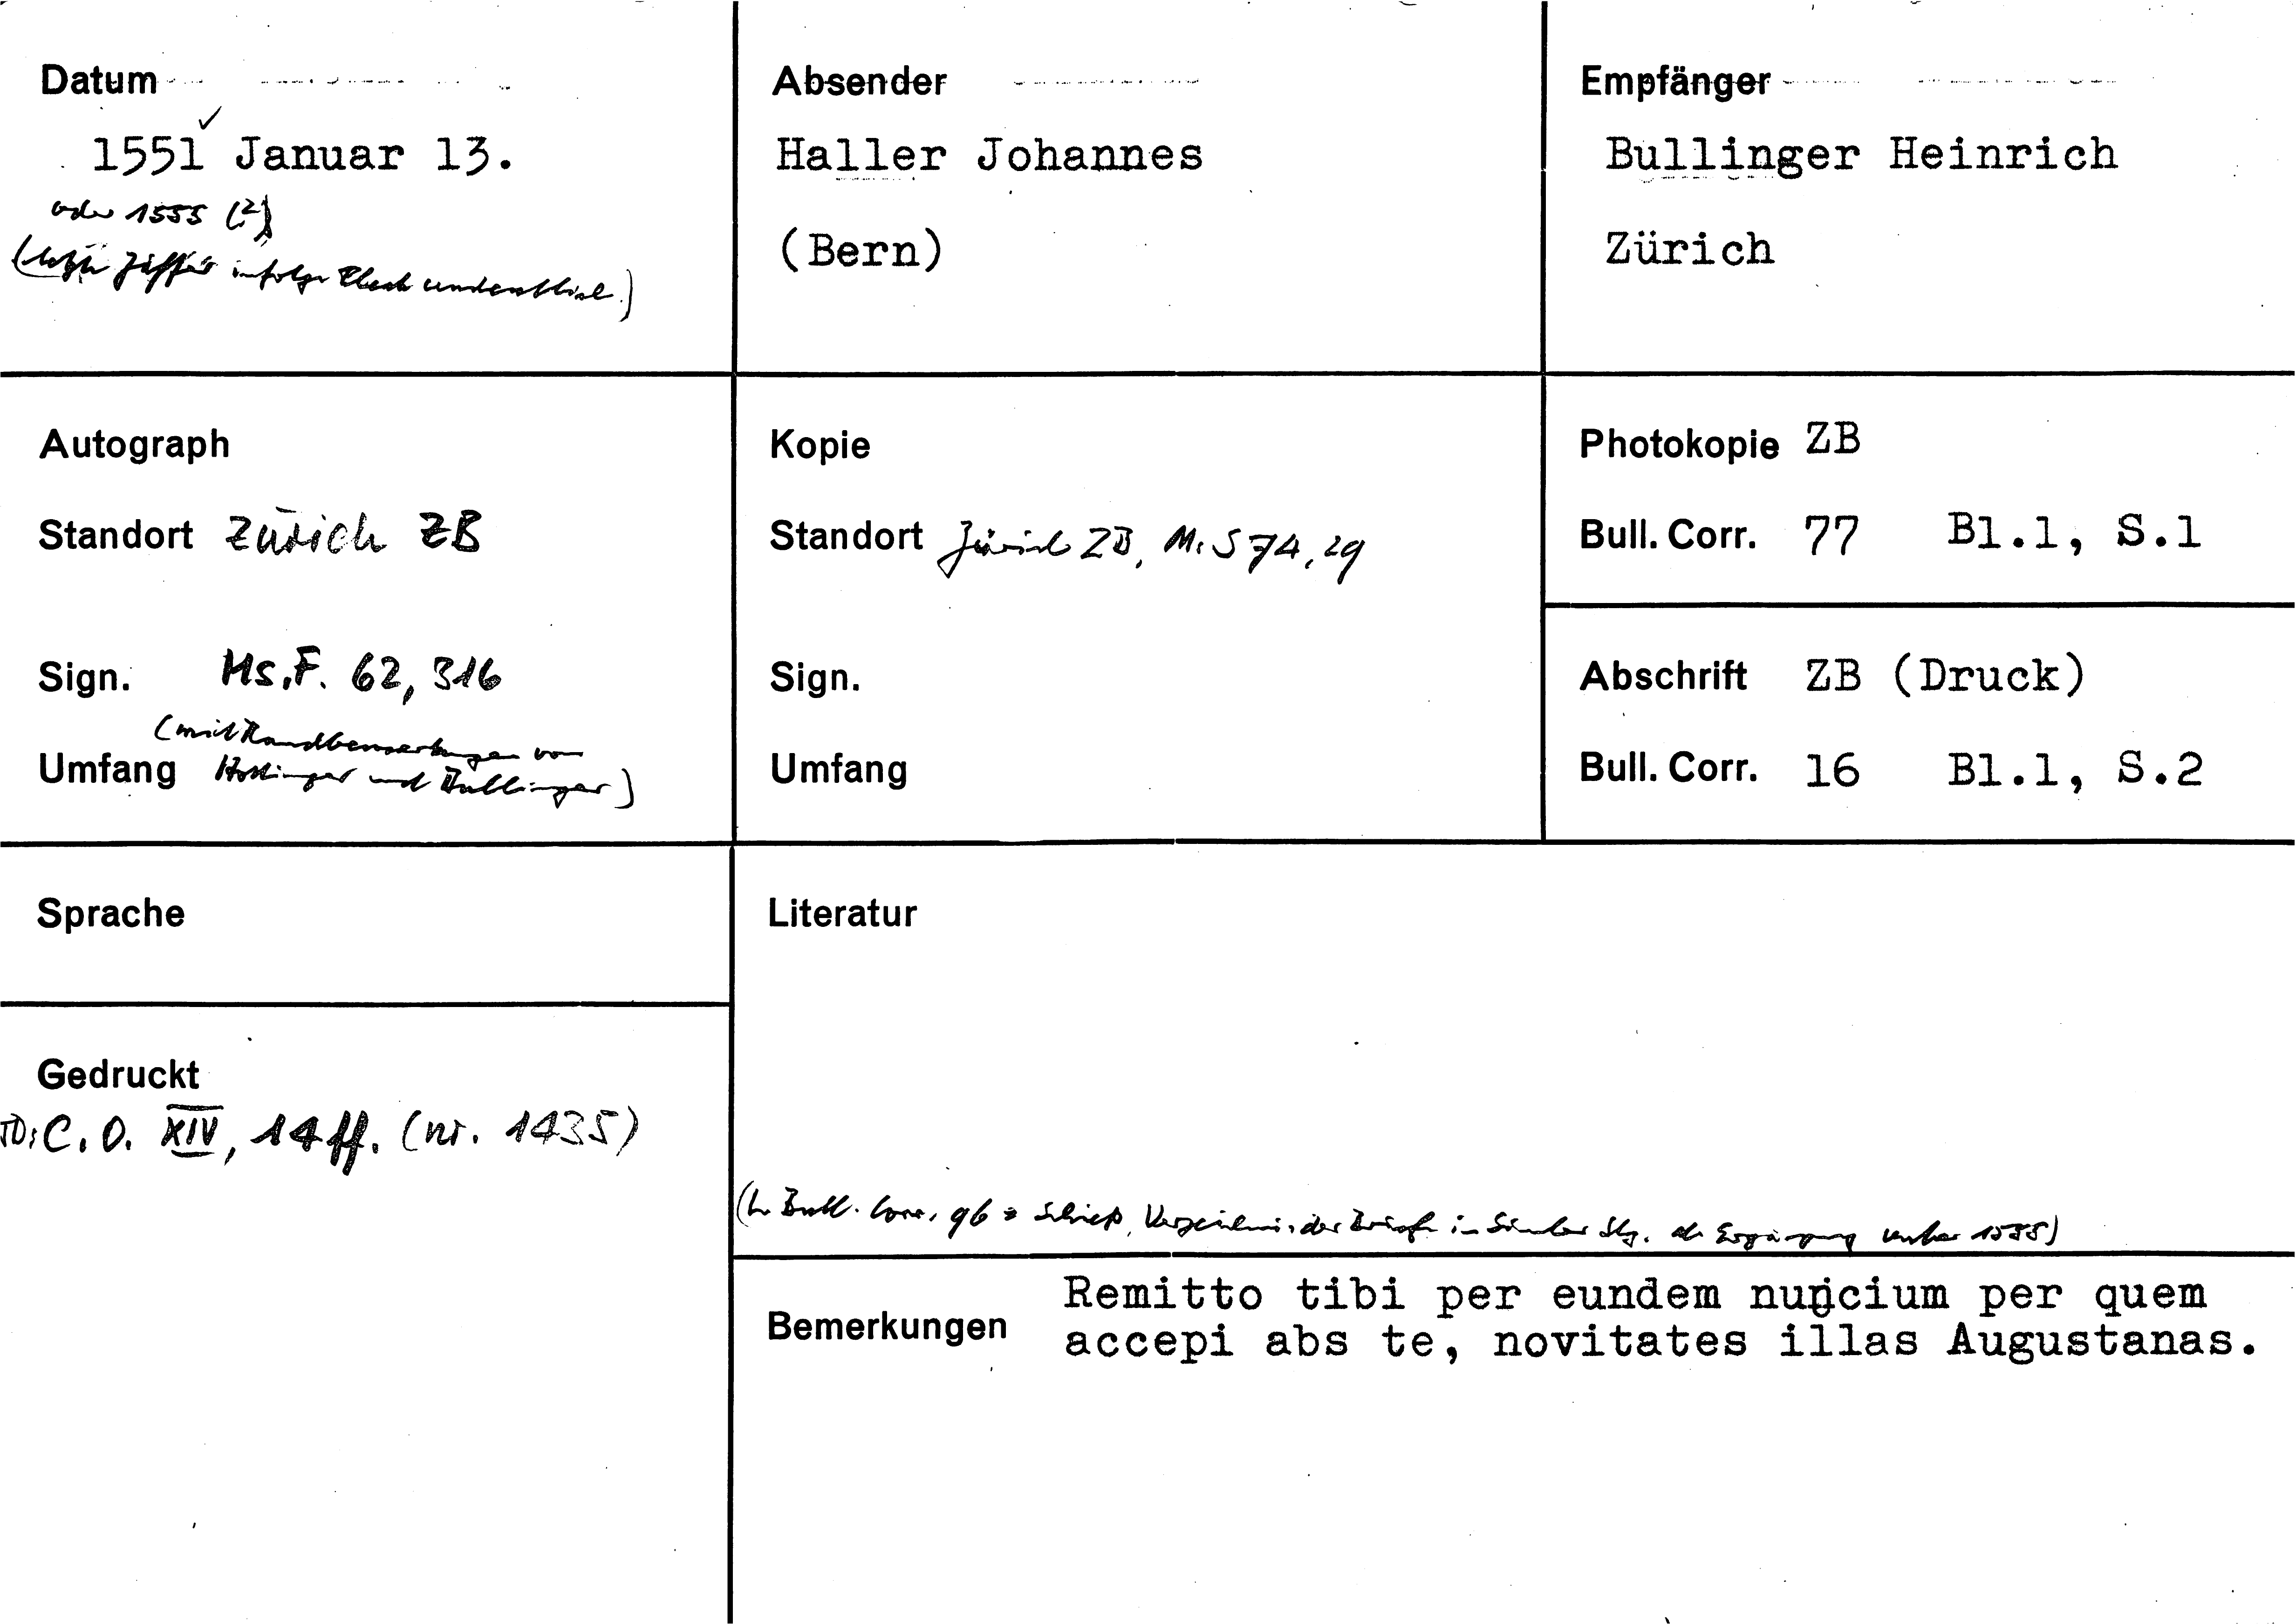 Datum
1551 Januar 13.
oder 1555 (?)
(letzte Ziffer infolge Fleck undeutlich.)
Absender
Haller Johannes
(Bern)
Empfänger
Bullinger Heinrich
Zürich
Autograph
Standort Zürich ZB
Sign. Ms.F. 62, 316
(mit Randbemerkungen von
Umfang Hottinger und Bullinger)
Kopie
Standort Zürich ZB, Ms S 74, 29
Sign.
Umfang
Photokopie ZB
Bull. Corr. 77 Bl.1, S.1
Abschrift ZB (Druck)
Bull. Corr. 16 Bl.1, S.2
Sprache
Gedruckt
C. O. XIV, 14 ff. (nr. 1435)
Literatur
Bull. Corr. 96 = Schieß, Verzeichnis der Briefe in Simler Slg. als Ergänzung unter 1555)
Bemerkungen
Remitto tibi per eundem nuncium per quem
accepi abs te, novitates illas Augustanas.